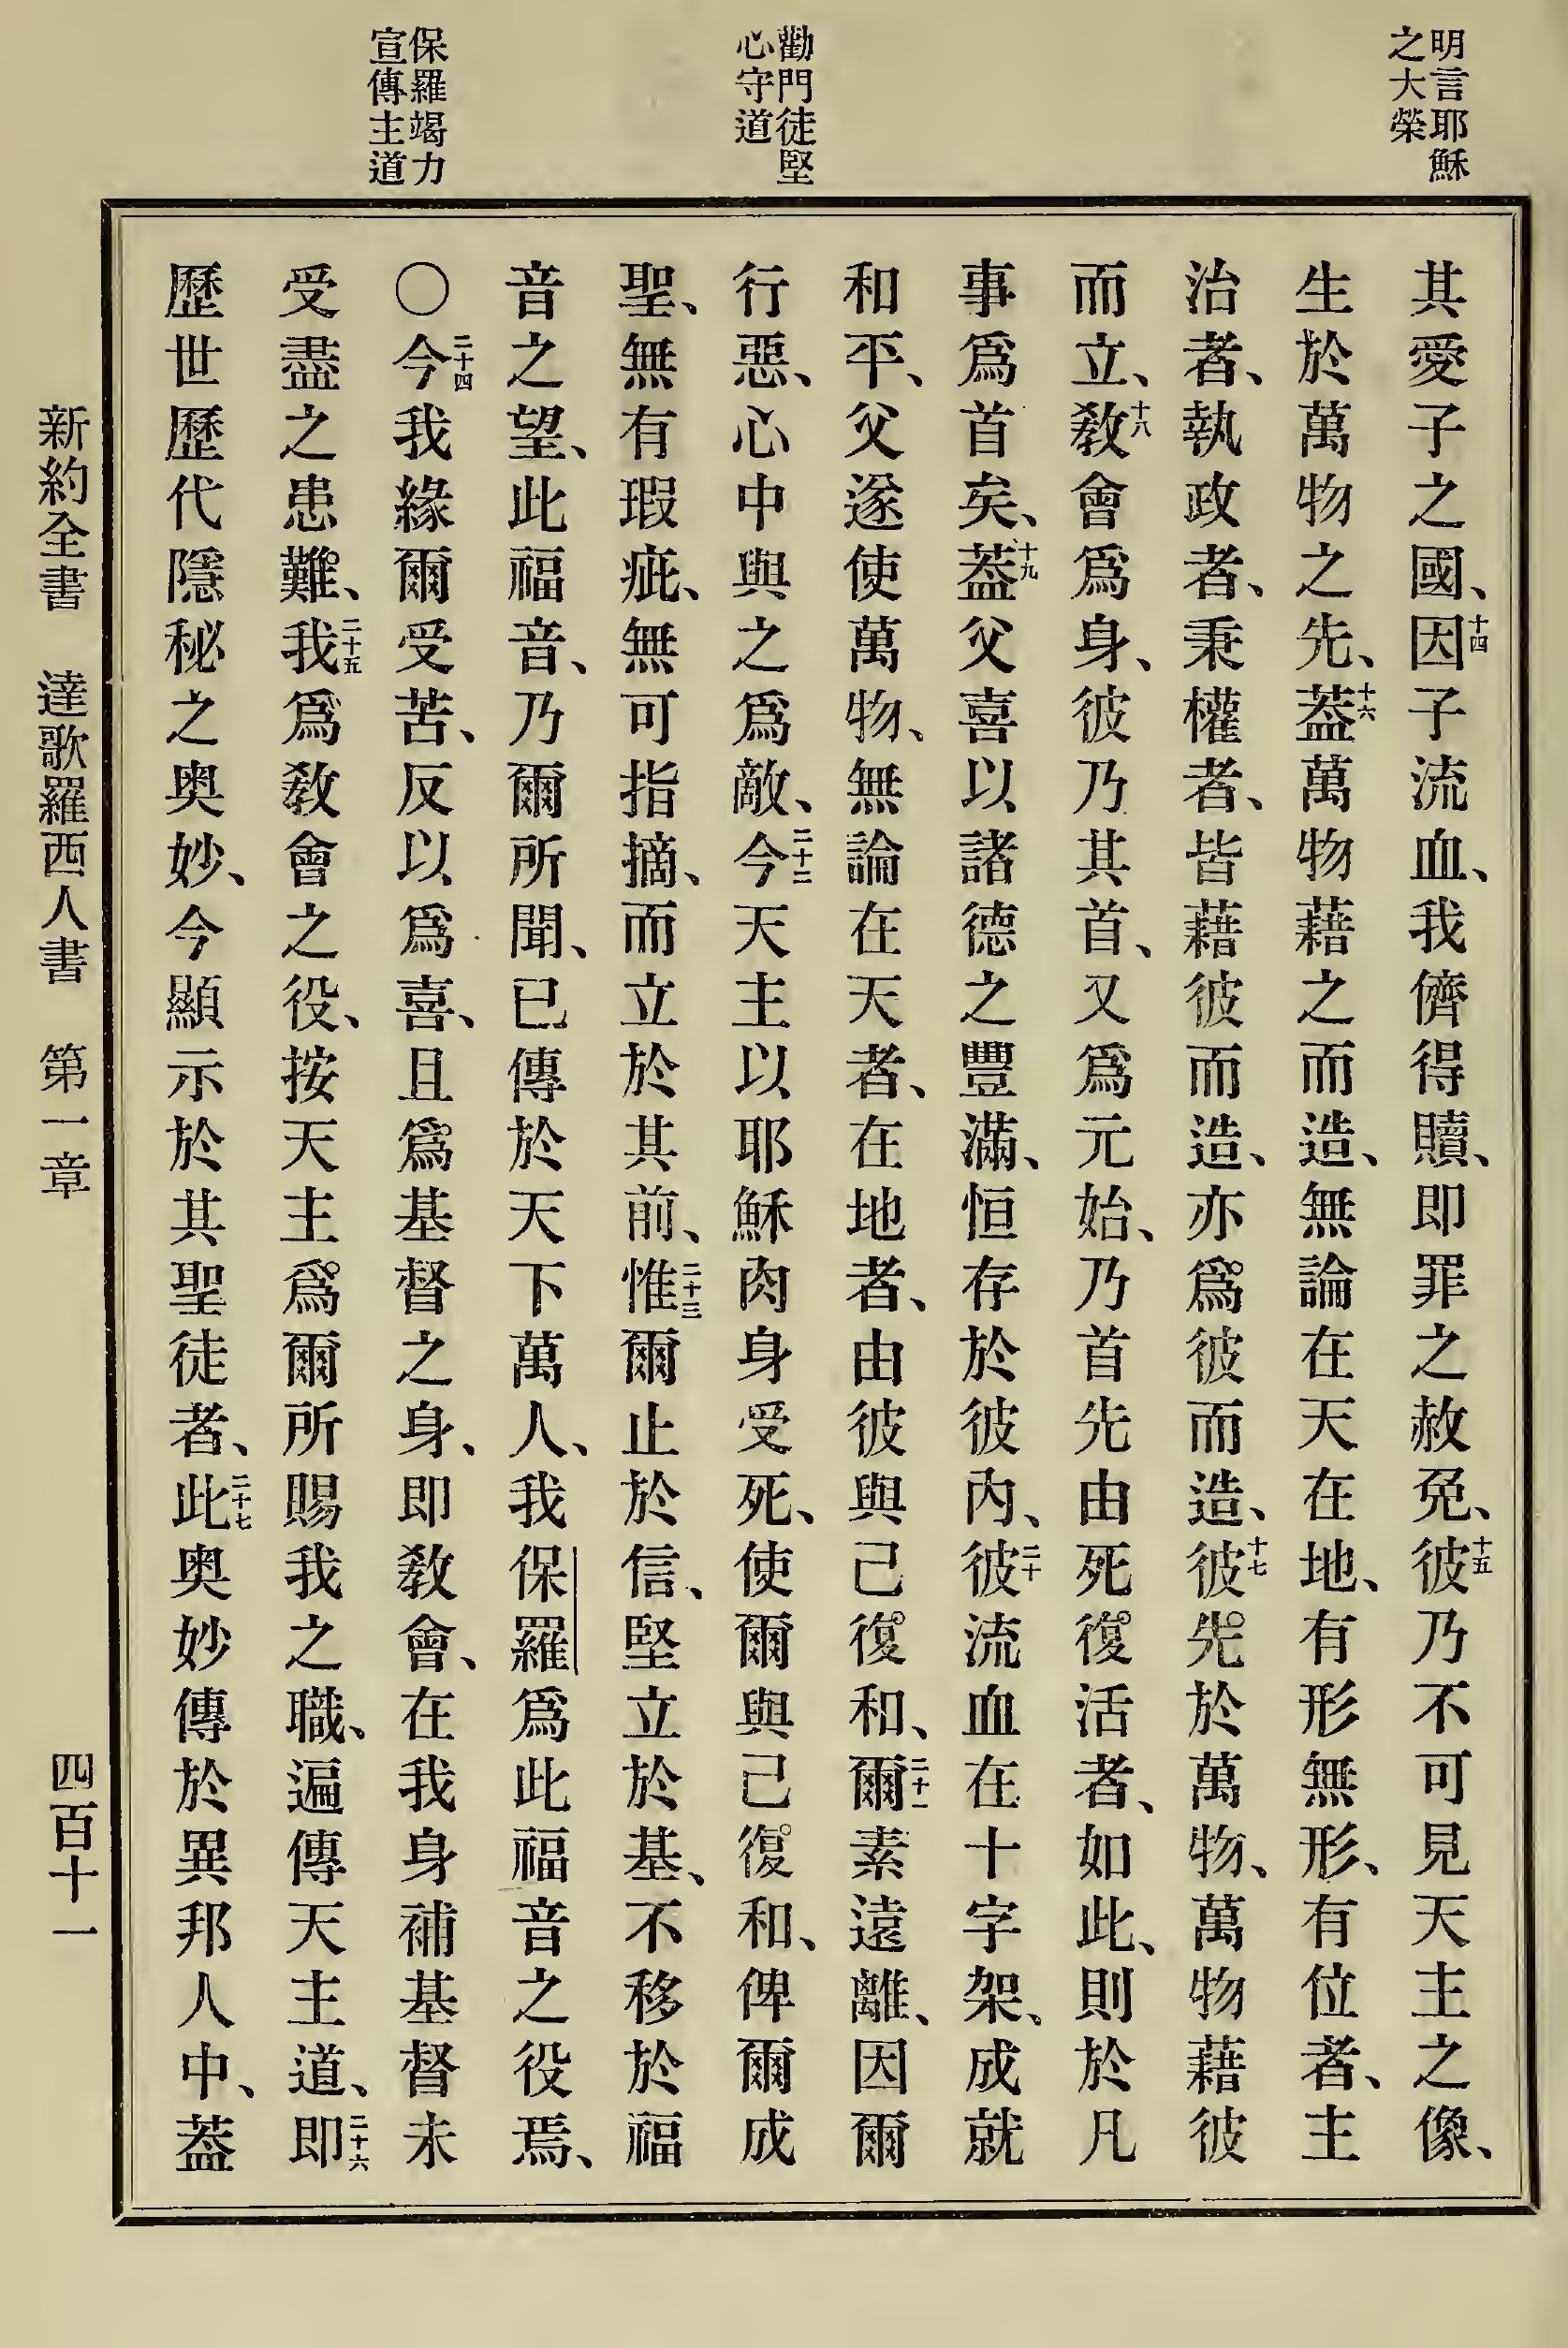 明言耶穌
之大榮
勸門徒堅
心守道
保羅竭力
宣傳主道
其愛子之國、十四因子流血、我儕得贖、即罪之赦免、十五彼乃不可見天主之像、
生於萬物之先、十六蓋萬物藉之而造、無論在天在地、有形無形、有位者、主
治者、執政者、秉權者、皆藉彼而造、亦爲彼而造、十七彼先於萬物、萬物藉彼
而立、十八敎會爲身、彼乃其首、又爲元始、乃首先由死復活者、如此、則於凡
事爲首矣、十九蓋父喜以諸德之豐滿、恒存於彼內、二十彼流血在十字架、成就
和平、父遂使萬物、無論在天者、在地者、由彼與己復和、二十一爾素遠離、因爾
行惡、心中與之爲敵、二十二今天主以耶穌肉身受死、使爾與己復和、俾爾成
聖、無有瑕疵、無可指摘、而立於其前、二十三惟爾止於信、堅立於基、不移於福
音之望、此福音、乃爾所聞、已傳於天下萬人、我保羅爲此福音之役焉、
〇二十四今我緣爾受苦、反以爲喜、且爲基督之身、即敎會、在我身補基督未
受盡之患難、二十五我爲敎會之役、按天主爲爾所賜我之職、遍傳天主道、二十六即
歷世歷代隱秘之奧妙、今顯示於其聖徒者、二十七此奧妙傳於異邦人中、蓋
新約全書 達歌羅西人書 第一章 四百十一